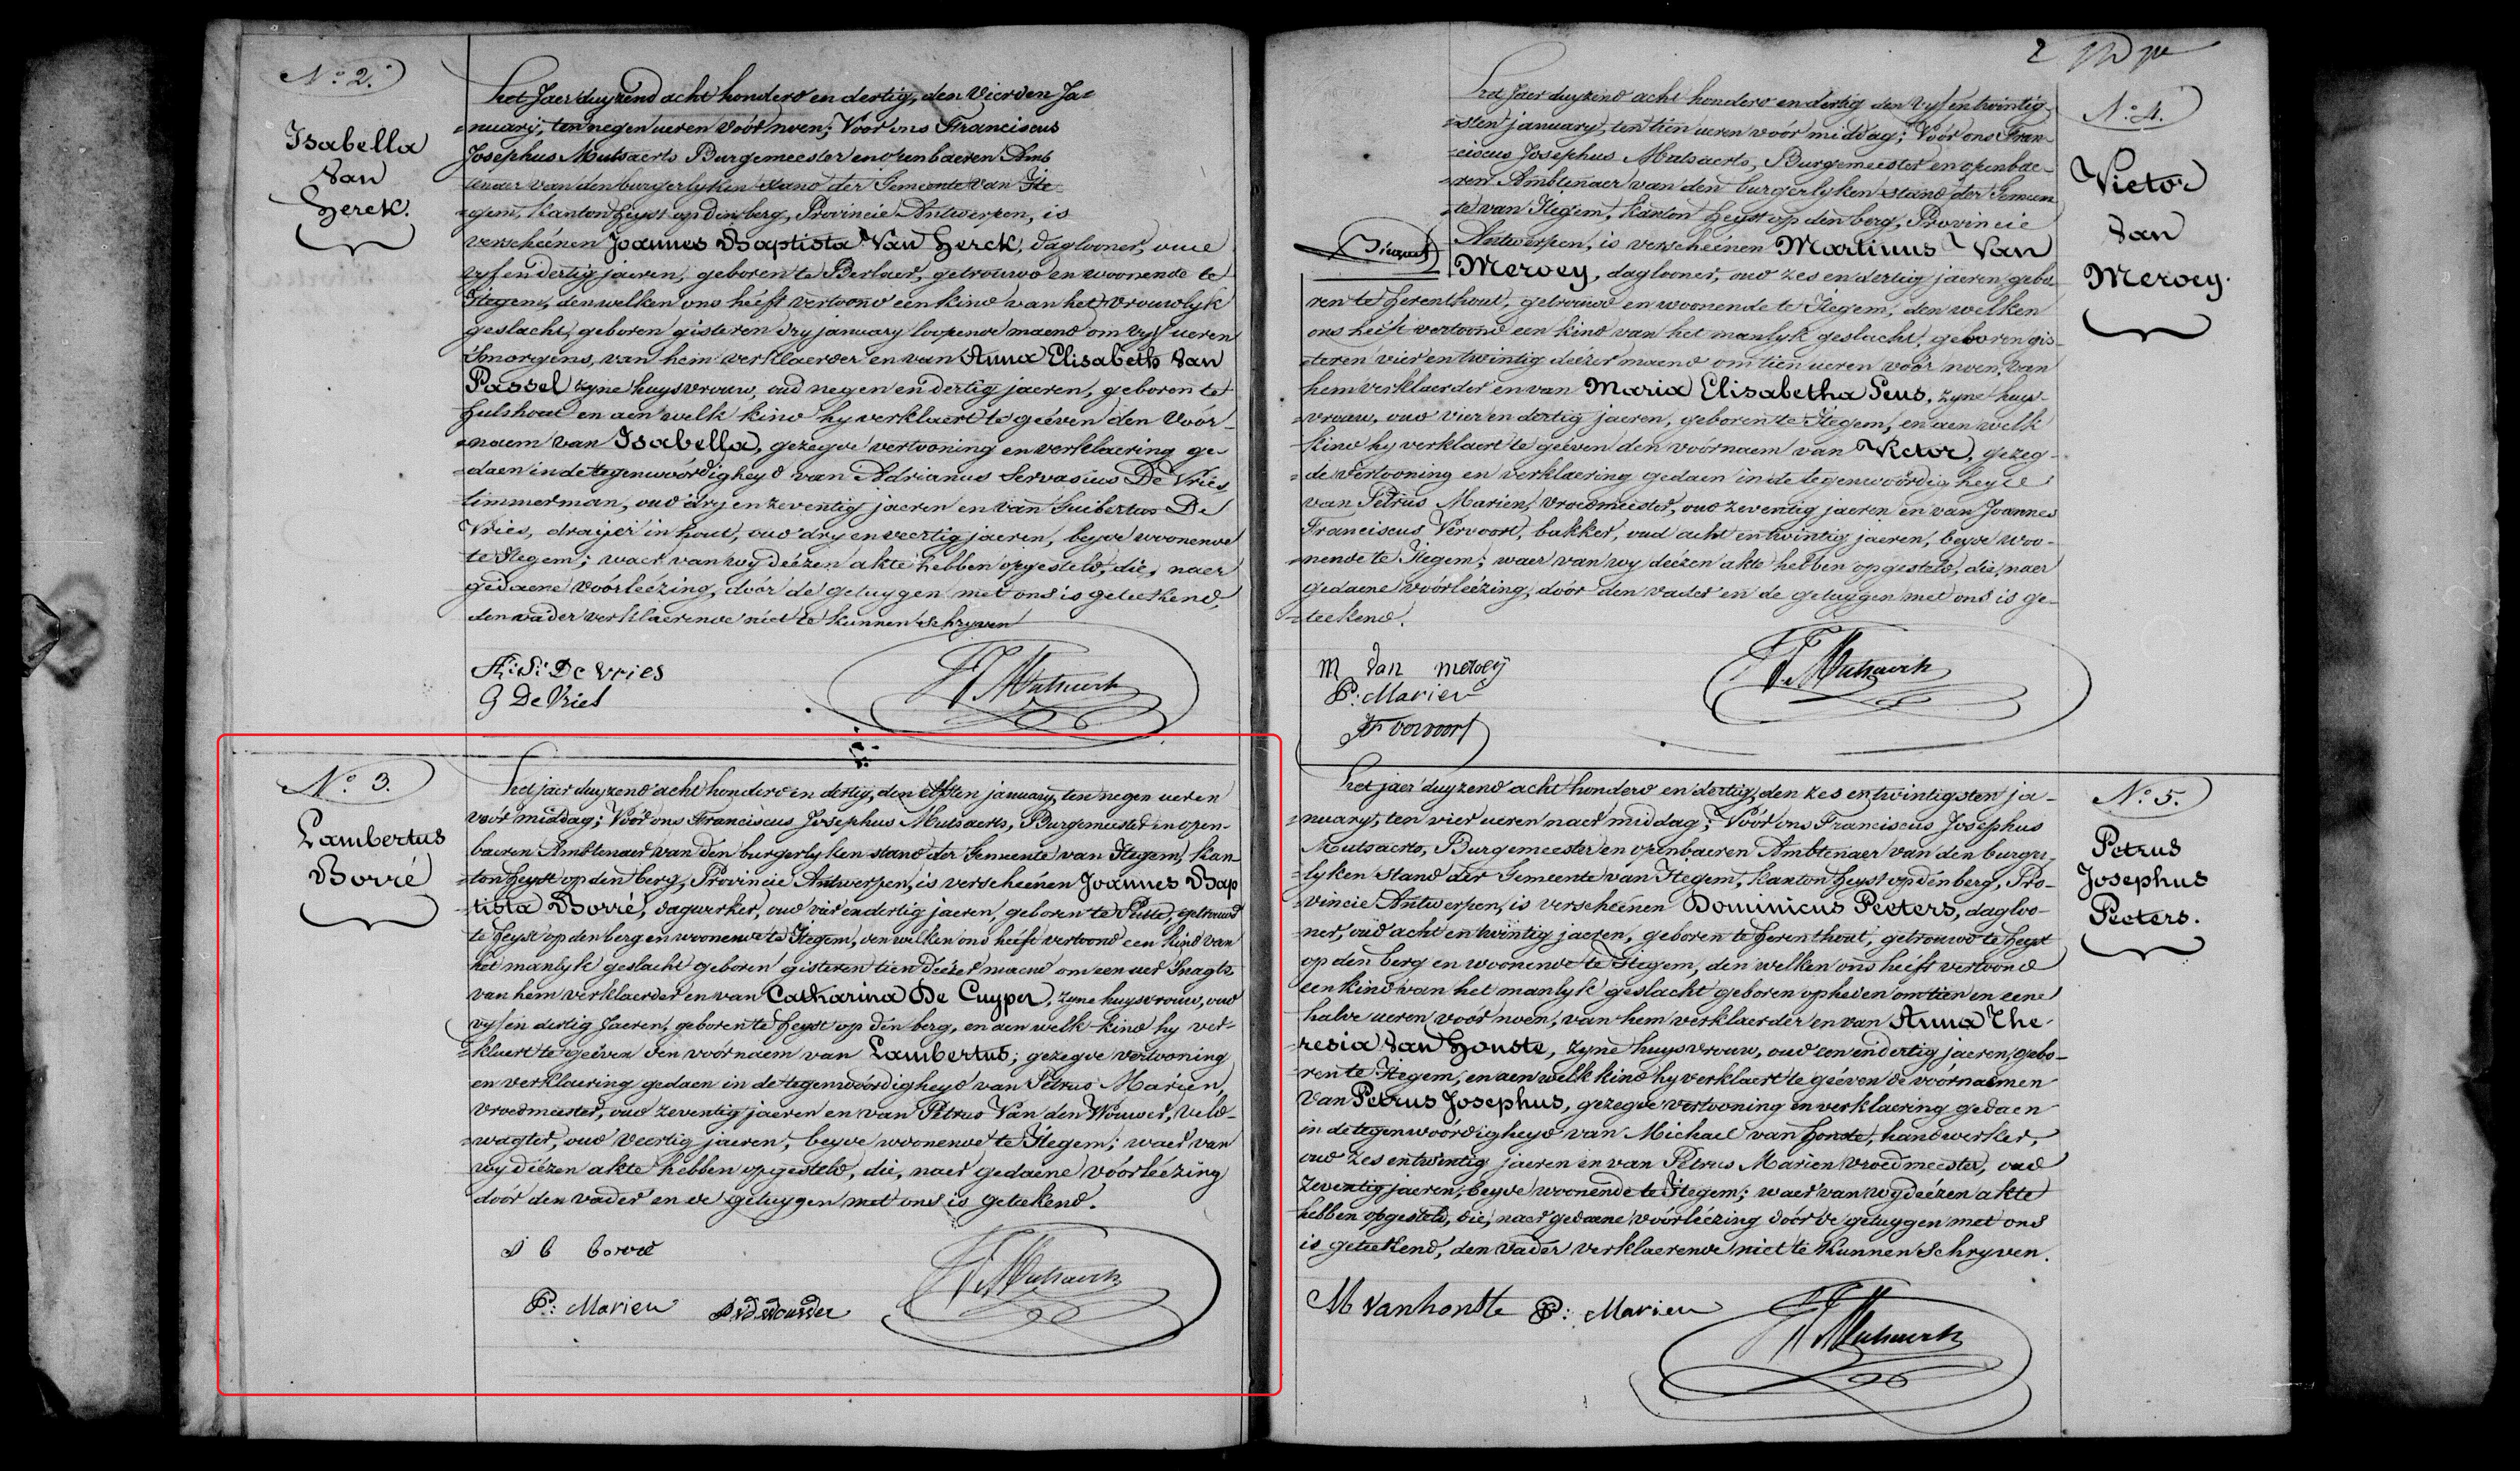 N.° 2.
Isabella
Van
Herck.
Het Jaer duyzend acht honderd en dertig, den Vierden Ja=
=nuarij, ten negen ueren vóór noen; Voor ons Franciscus
Josephus Mutsaerts Burgemeester en openbaeren Amb
tenaer van den burgerlyken stand der Gemeente van Ite
=gem, Kanton Heyst op den berg, Provincie Antwerpen, is
verscheénen Joannes Baptista Van Herck, daglooner, oud
vyf en dertig jaeren, geboren te Berlaer, getrouwd en woonende te
Itegem, den welken ons heéft vertoond een kind van het vrouwlyk
geslacht, geboren gisteren dry january loopende maend om vyf ueren
s'morgens, van hem verklaerder en van Anna Elisabeth Van
Passel zyne huysvrouw, oud negen en dertig jaeren, geboren te
Hulshout en aen welk kind hy verklaert te geéven den Vóór-
=naem van Isabella, gezegde vertooning en verklaering ge-
=daen in de tegenwoórdigheyd van Adrianus Servasius De Vries
timmerman, oud dry en zeventig jaeren en van Guibertus De
Vries, draijer in hout, oud dry en veertig jaeren, beyde woonende
te Itegem; waer van wy deézen akte hebben opgesteld, die, naer
gedaene vóórleézing, dóór de getuygen met ons is geteekend,
den vader verklaerende niet te kunnen schryven
A: S: De Vries
G De Vries
FJ Mutsaerts
N.° 3.
Lambertus
Borré
Het jaer duyzend acht honderd en dertig, den elfsten january, ten negen ueren
vóór middag; Vóór ons Franciscus Josephus Mutsaerts, Burgemeester en open-
baeren Ambtenaer van den burgerlyken stand der Gemeente van Itegem, Kan-
=ton Heyst op den berg, Provincie Antwerpen, is verscheénen Joannes Bap
tista Borré, dagwerker, oud vier en dertig jaeren, geboren te Putte, getrouwd
te Heyst op den berg en woonende te Itegem, den welken ons heéft vertoond een kind van
het manlyk geslacht geboren gisteren tien deézer maend om een uer s'nagts
van hem verklaerder en van Catharina De Cuyper, zyne huysvrouw, oud
vyf en dertig Jaeren, geboren te Heyst op den berg, en aen welk kind hy ver-
=klaert te geéven den vóórnaem van Lambertus; gezegde vertooning
en verklaering gedaen in de tegenwoórdigheyd van Petrus Marien,
vroedmeester, oud zeventig jaeren en van Petrus Van den Wouwer, veld-
=wagter, oud veertig jaeren, beyde woonende te Itegem; waer van
wy deézen akte hebben opgesteld, die, naer gedaene vóórleézing
dóór den vader en de getuygen met ons is geteekend.
J b borré
P: Marien
FJ Mutsaerts
2
N.° 4.
Victor
Van
Mervey.
Het Jaer duyzend acht honderd en dertig den vyf en twintig-
=sten january, ten tien ueren vóór middag; Vóór ons Fran-
=ciscus Josephus Mutsaerts, Burgemeester en openbae-
=ren Ambtenaer van den burgerlyken stand der Gemeen
=te van Itegem, Kanton Heyst op den berg, Provincie
Antwerpen, is verscheénen Martinus Van
Mervey, daglooner, oud zes en dertig jaeren, gebo-
ren te Herenthout, getrouwd en woonende te Itegem, den welken
ons heéft vertoond een kind van het manlyk geslacht, geboren gis-
=teren vier en twintig deézer maend om tien ueren vóór noen, van
hem verklaerder en van Maria Elisabetha Peus, zyne huys-
vrouw, oud vier en dertig jaeren, geboren te Itegem, en aen welk
kind hy verklaert te geéven den vóórnaem van Victor, gezeg-
=de vertooning en verklaering gedaen in de tegenwoórdigheyd
van Petrus Marien, vroedmeester, oud zeventig jaeren en van Joannes
Franciscus Vervoort, bakker, oud acht en twintig jaeren, beyde woo-
=nende te Itegem; waer van wy deézen akte hebben opgesteld, die, naer
gedaene vóórleézing, dóór den vader en de getuygen met ons is ge-
=teekend.
M Van Mervey
P: Marien
JF Vervoort
FJ Mutsaerts
N.° 5.
Petrus
Josephus
Peeters.
Het jaer duyzend acht honderd en dertig, den zes en twintigsten ja-
=nuary, ten vier ueren naer middag; Vóór ons Franciscus Josephus
Mutsaerts, Burgemeester en openbaeren Ambtenaer van den burger-
=lyken stand der Gemeente van Itegem, Kanton Heyst op den berg, Pro-
=vincie Antwerpen, is verscheénen Dominicus Peeters, dagloo-
=ner, oud acht en twintig jaeren, geboren te Herenthout, getrouwd te Heyst
op den berg en woonende te Itegem, den welken ons heéft vertoond
een kind van het manlyk geslacht geboren op heden om tien en eene
halve ueren vóór noen, van hem verklaerder en van Anna The-
resia Van Honste, zyne huysvrouw, oud een en dertig jaeren, gebo-
ren te Itegem, en aen welk kind hy verklaert te geéven de vóórnaemen
van Petrus Josephus, gezegde vertooning en verklaering gedaen
in de tegenwoórdigheyd van Michael van Honste, handwerker,
oud zes en twintig jaeren en van Petrus Marien vroedmeester, oud
zeventig jaeren, beyde woonende te Itegem; waer van wy deézen akte
hebben opgesteld, die, naer gedaene vóórleézing dóór de getuygen met ons
is geteekend, den vader verklaerende niet te kunnen schryven.
M Vanhonste P: Marien
FJ Mutsaerts